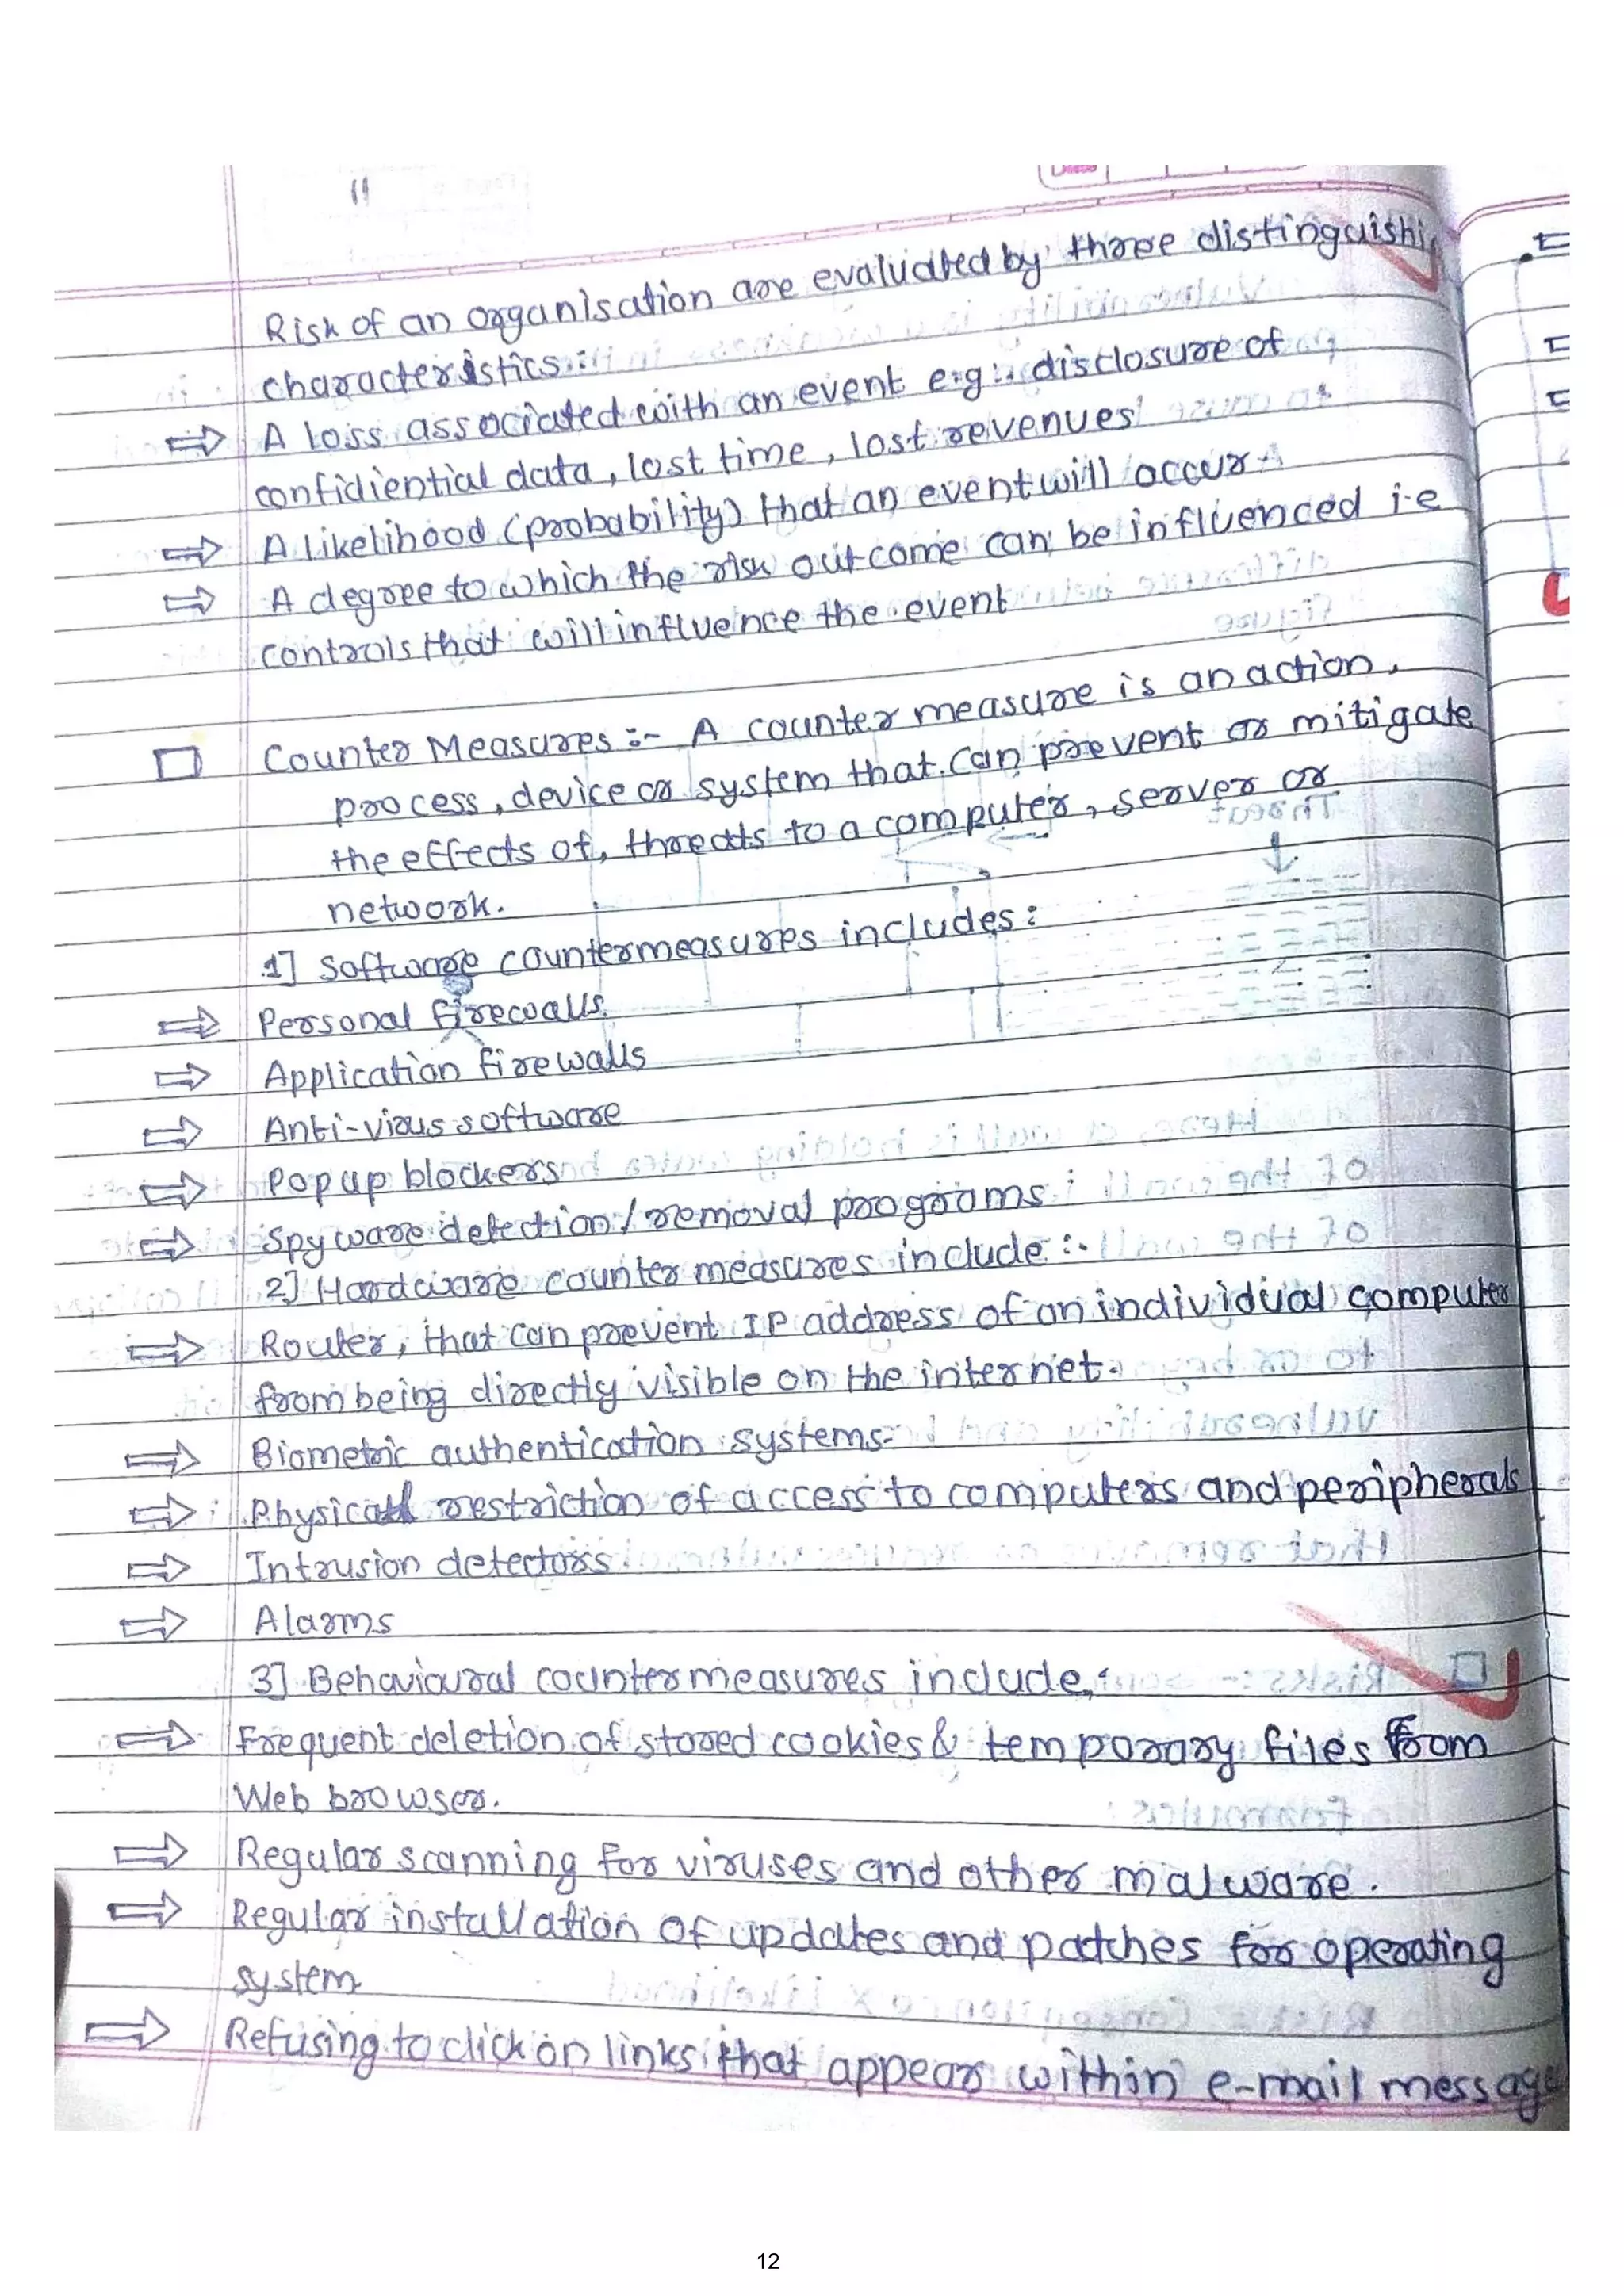 11
Risk of an organisation are evaluated by three distinguishi
characteristics :
⇒ A loss associated with an event e.g :. disclosure of
confidiential data, lost time, lost revenues
⇒ A likelihood (probability) that an event will occur.
⇒ A degree to which the risk outcome can be influenced i.e
controls that will influence the event
□ Counter Measures :- A counter measure is an action,
process, device or system that can prevent or mitigate
the effects of, threats to a computer, server or
network.
1] Software countermeasures includes :
⇒ Personal firewalls
⇒ Application firewalls
⇒ Anti-virus software
⇒ Pop up blockers
⇒ Spyware detection / removal programs
2] Hardware counter measures include :-
⇒ Router, that can prevent IP address of an individual computer
from being directly visible on the internet.
⇒ Biometric authentication systems
⇒ Physical restriction of access to computers and peripherals
⇒ Intrusion detectors
⇒ Alarms
3] Behavioural counter measures include,
⇒ Frequent deletion of stored cookies & temporary files from
Web browser.
⇒ Regular scanning for viruses and other malware.
⇒ Regular installation of updates and patches for operating
system
⇒ Refusing to click on links that appear within e-mail message
12